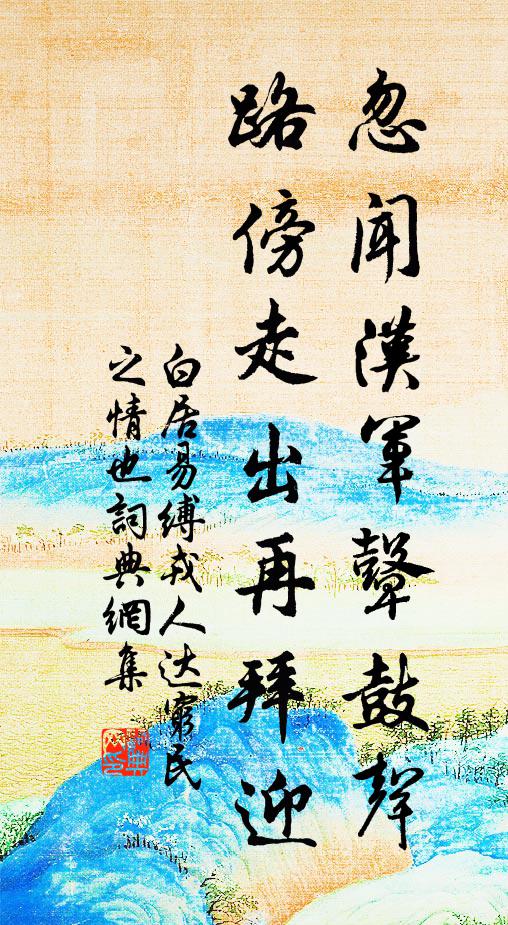 忽闻漢軍鼙鼓聲
路傍走出再拜迎
白居易縛戎人达窮民
之情也詞典網集